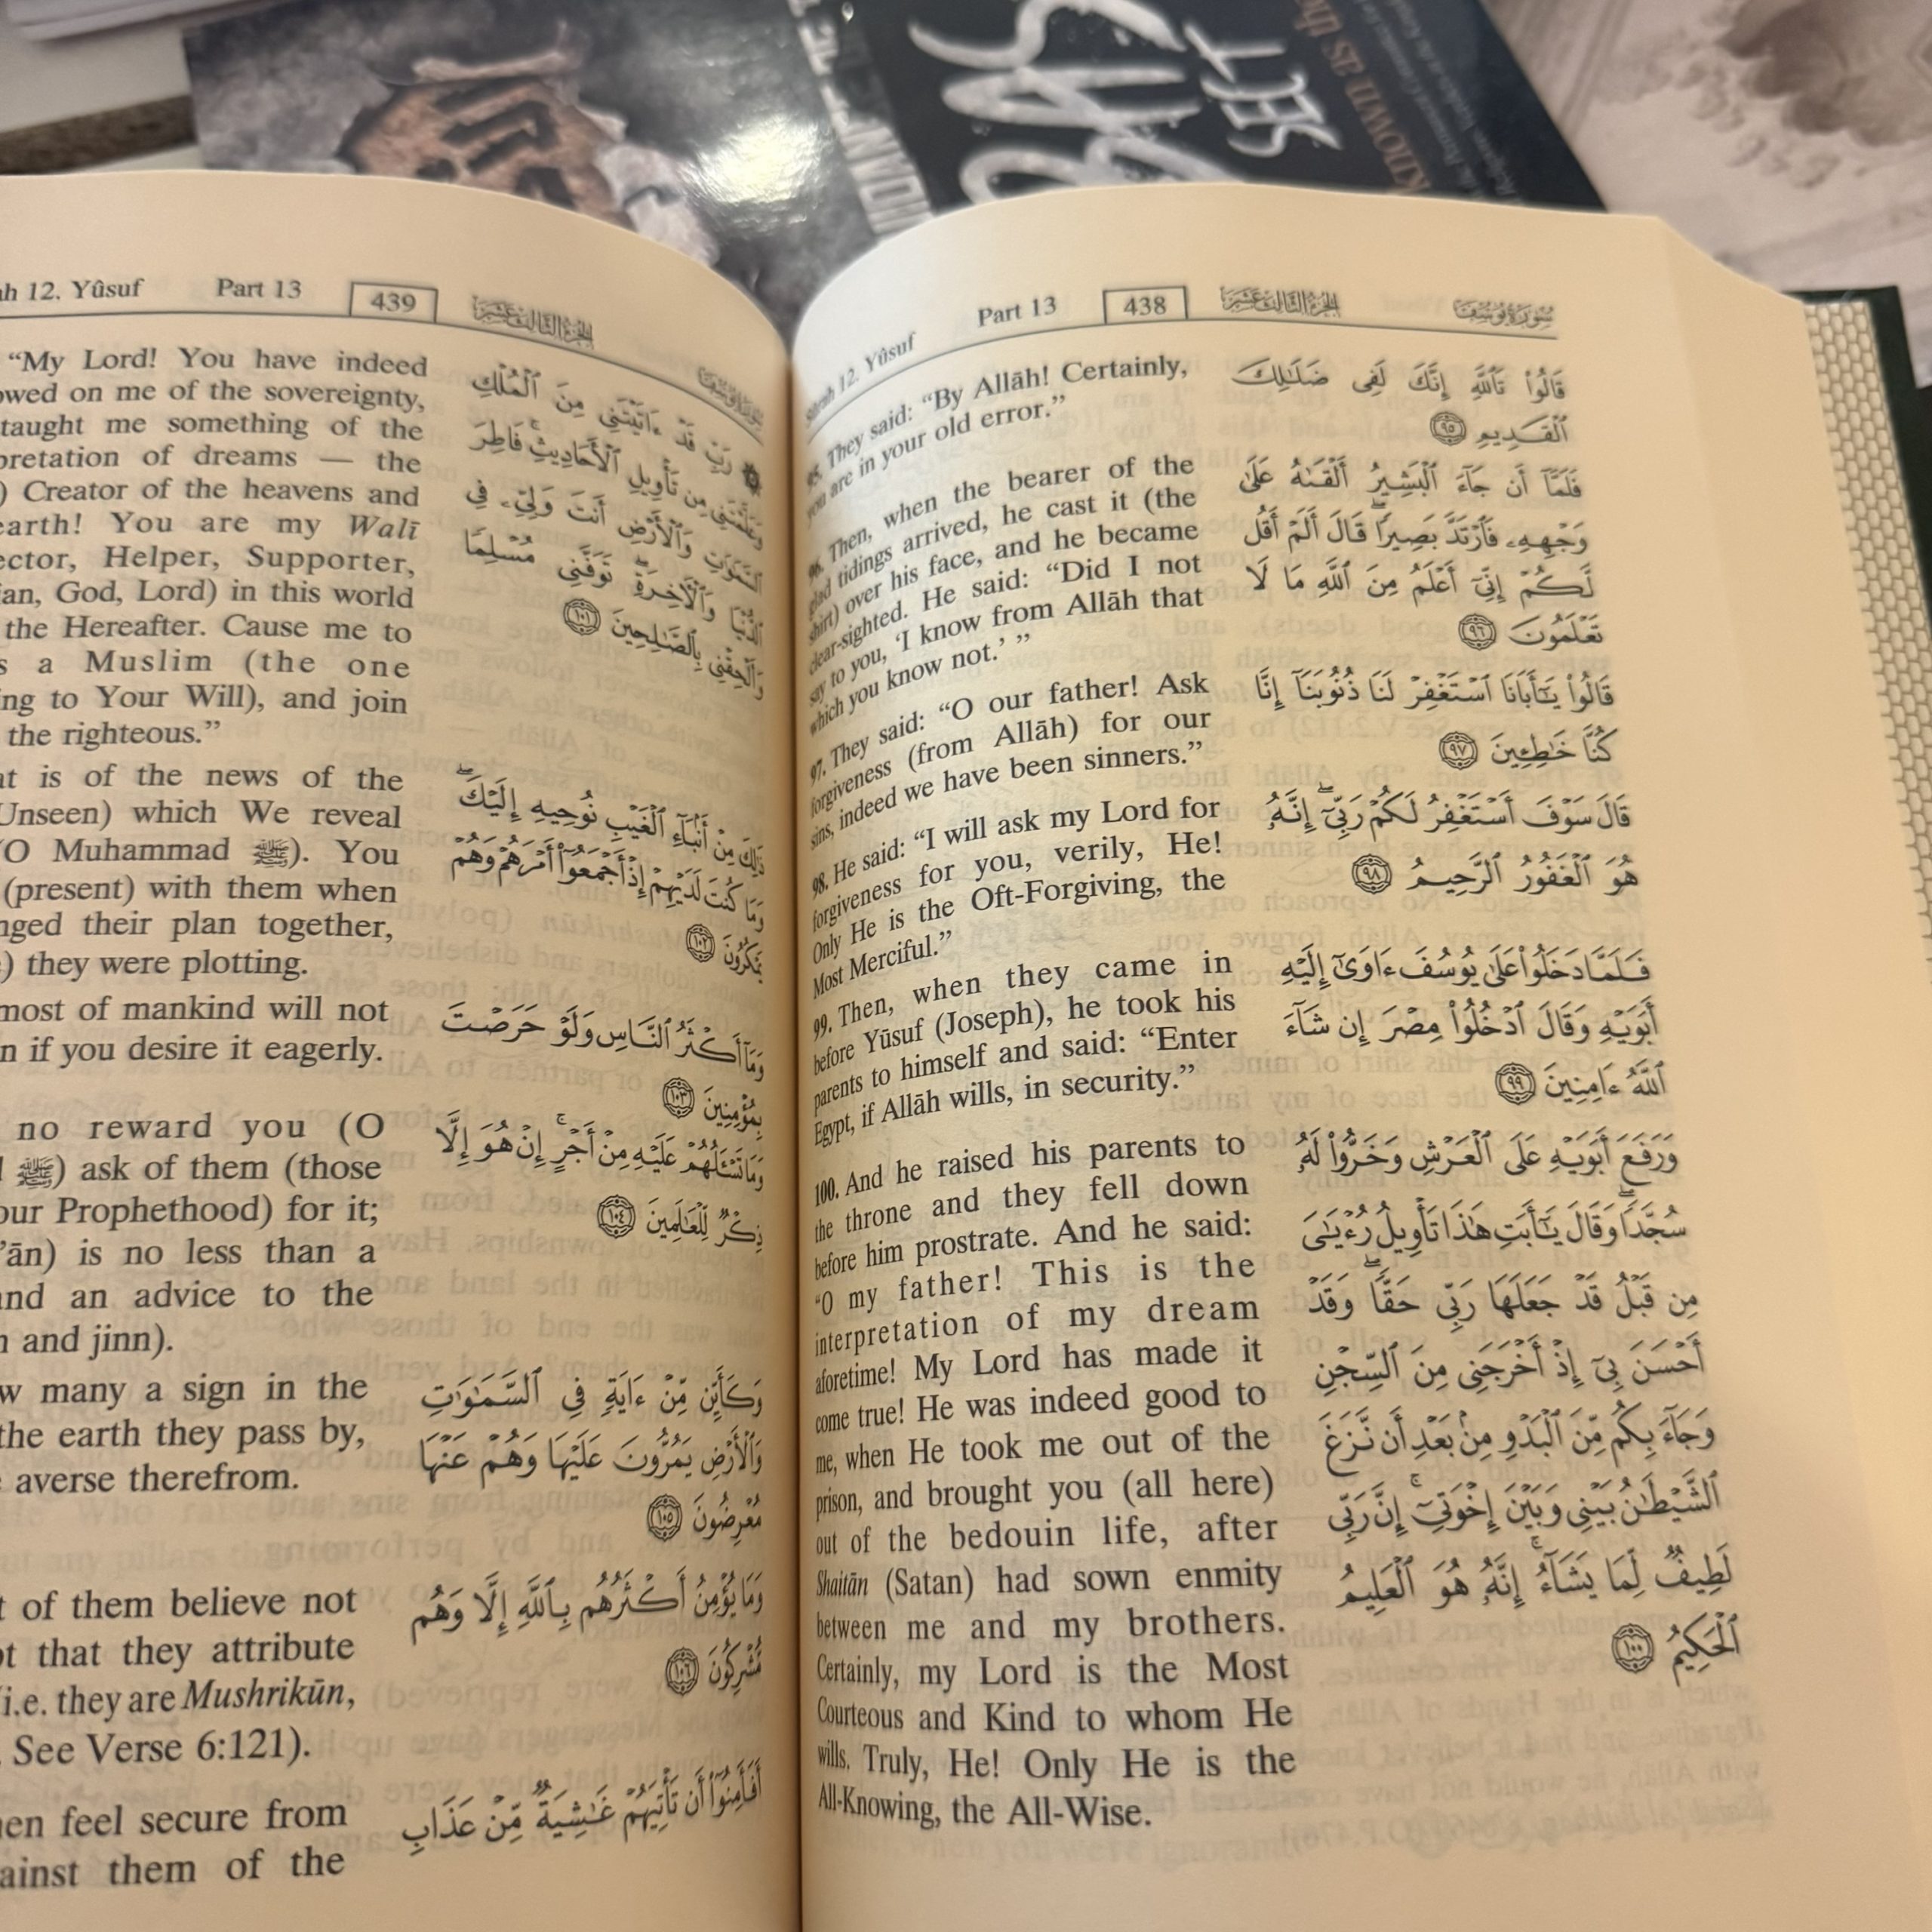 Part 13
438
الجزء الثالث عشر
سورة يوسف
Sûrah 12. Yûsuf
95. They said: “By Allāh! Certainly,
you are in your old error.”
96. Then, when the bearer of the
glad tidings arrived, he cast it (the
shirt) over his face, and he became
clear-sighted. He said: “Did I not
say to you, ‘I know from Allāh that
which you know not.’ ”
97. They said: “O our father! Ask
forgiveness (from Allāh) for our
sins, indeed we have been sinners.”
98. He said: “I will ask my Lord for
forgiveness for you, verily, He!
Only He is the Oft-Forgiving, the
Most Merciful.”
99. Then, when they came in
before Yūsuf (Joseph), he took his
parents to himself and said: “Enter
Egypt, if Allāh wills, in security.”
100. And he raised his parents to
the throne and they fell down
before him prostrate. And he said:
“O my father! This is the
interpretation of my dream
aforetime! My Lord has made it
come true! He was indeed good to
me, when He took me out of the
prison, and brought you (all here)
out of the bedouin life, after
Shaitān (Satan) had sown enmity
between me and my brothers.
Certainly, my Lord is the Most
Courteous and Kind to whom He
wills. Truly, He! Only He is the
All-Knowing, the All-Wise.
قَالُوا۟ تَٱللَّهِ إِنَّكَ لَفِى ضَلَـٰلِكَ
ٱلْقَدِيمِ ٩٥
فَلَمَّآ أَن جَآءَ ٱلْبَشِيرُ أَلْقَىٰهُ عَلَىٰ
وَجْهِهِۦ فَٱرْتَدَّ بَصِيرًا ۖ قَالَ أَلَمْ أَقُل
لَّكُمْ إِنِّىٓ أَعْلَمُ مِنَ ٱللَّهِ مَا لَا
تَعْلَمُونَ ٩٦
قَالُوا۟ يَـٰٓأَبَانَا ٱسْتَغْفِرْ لَنَا ذُنُوبَنَآ إِنَّا
كُنَّا خَـٰطِـِٔينَ ٩٧
قَالَ سَوْفَ أَسْتَغْفِرُ لَكُمْ رَبِّىٓ ۖ إِنَّهُۥ
هُوَ ٱلْغَفُورُ ٱلرَّحِيمُ ٩٨
فَلَمَّا دَخَلُوا۟ عَلَىٰ يُوسُفَ ءَاوَىٰٓ إِلَيْهِ
أَبَوَيْهِ وَقَالَ ٱدْخُلُوا۟ مِصْرَ إِن شَآءَ
ٱللَّهُ ءَامِنِينَ ٩٩
وَرَفَعَ أَبَوَيْهِ عَلَى ٱلْعَرْشِ وَخَرُّوا۟ لَهُۥ
سُجَّدًا ۖ وَقَالَ يَـٰٓأَبَتِ هَـٰذَا تَأْوِيلُ رُءْيَـٰىَ
مِن قَبْلُ قَدْ جَعَلَهَا رَبِّى حَقًّا ۖ وَقَدْ
أَحْسَنَ بِىٓ إِذْ أَخْرَجَنِى مِنَ ٱلسِّجْنِ
وَجَآءَ بِكُم مِّنَ ٱلْبَدْوِ مِنۢ بَعْدِ أَن نَّزَغَ
ٱلشَّيْطَـٰنُ بَيْنِى وَبَيْنَ إِخْوَتِىٓ ۚ إِنَّ رَبِّى
لَطِيفٌ لِّمَا يَشَآءُ ۚ إِنَّهُۥ هُوَ ٱلْعَلِيمُ
ٱلْحَكِيمُ ١٠٠
ah 12. Yûsuf
Part 13
439
الجزء الثالث عشر
سورة يوسف
“My Lord! You have indeed
owed on me of the sovereignty,
taught me something of the
pretation of dreams — the
) Creator of the heavens and
earth! You are my Walī
ector, Helper, Supporter,
ian, God, Lord) in this world
the Hereafter. Cause me to
s a Muslim (the one
ing to Your Will), and join
the righteous.”
at is of the news of the
Unseen) which We reveal
(O Muhammad ﷺ). You
(present) with them when
nged their plan together,
) they were plotting.
most of mankind will not
n if you desire it eagerly.
no reward you (O
ﷺ) ask of them (those
our Prophethood) for it;
’ān) is no less than a
and an advice to the
n and jinn).
w many a sign in the
the earth they pass by,
averse therefrom.
t of them believe not
pt that they attribute
i.e. they are Mushrikūn,
. See Verse 6:121).
hen feel secure from
ainst them of the
رَبِّ قَدْ ءَاتَيْتَنِى مِنَ ٱلْمُلْكِ
وَعَلَّمْتَنِى مِن تَأْوِيلِ ٱلْأَحَادِيثِ ۚ فَاطِرَ
ٱلسَّمَـٰوَٰتِ وَٱلْأَرْضِ أَنتَ وَلِىِّۦ فِى
ٱلدُّنْيَا وَٱلْـَٔاخِرَةِ ۖ تَوَفَّنِى مُسْلِمًا
وَأَلْحِقْنِى بِٱلصَّـٰلِحِينَ ١٠١
ذَٰلِكَ مِنْ أَنۢبَآءِ ٱلْغَيْبِ نُوحِيهِ إِلَيْكَ ۖ
وَمَا كُنتَ لَدَيْهِمْ إِذْ أَجْمَعُوٓا۟ أَمْرَهُمْ وَهُمْ
يَمْكُرُونَ ١٠٢
وَمَآ أَكْثَرُ ٱلنَّاسِ وَلَوْ حَرَصْتَ
بِمُؤْمِنِينَ ١٠٣
وَمَا تَسْـَٔلُهُمْ عَلَيْهِ مِنْ أَجْرٍ ۚ إِنْ هُوَ إِلَّا
ذِكْرٌ لِّلْعَـٰلَمِينَ ١٠٤
وَكَأَيِّن مِّنْ ءَايَةٍ فِى ٱلسَّمَـٰوَٰتِ
وَٱلْأَرْضِ يَمُرُّونَ عَلَيْهَا وَهُمْ عَنْهَا
مُعْرِضُونَ ١٠٥
وَمَا يُؤْمِنُ أَكْثَرُهُم بِٱللَّهِ إِلَّا وَهُم
مُّشْرِكُونَ ١٠٦
أَفَأَمِنُوٓا۟ أَن تَأْتِيَهُمْ غَـٰشِيَةٌ مِّنْ عَذَابِ
SECT
KNOWN as the